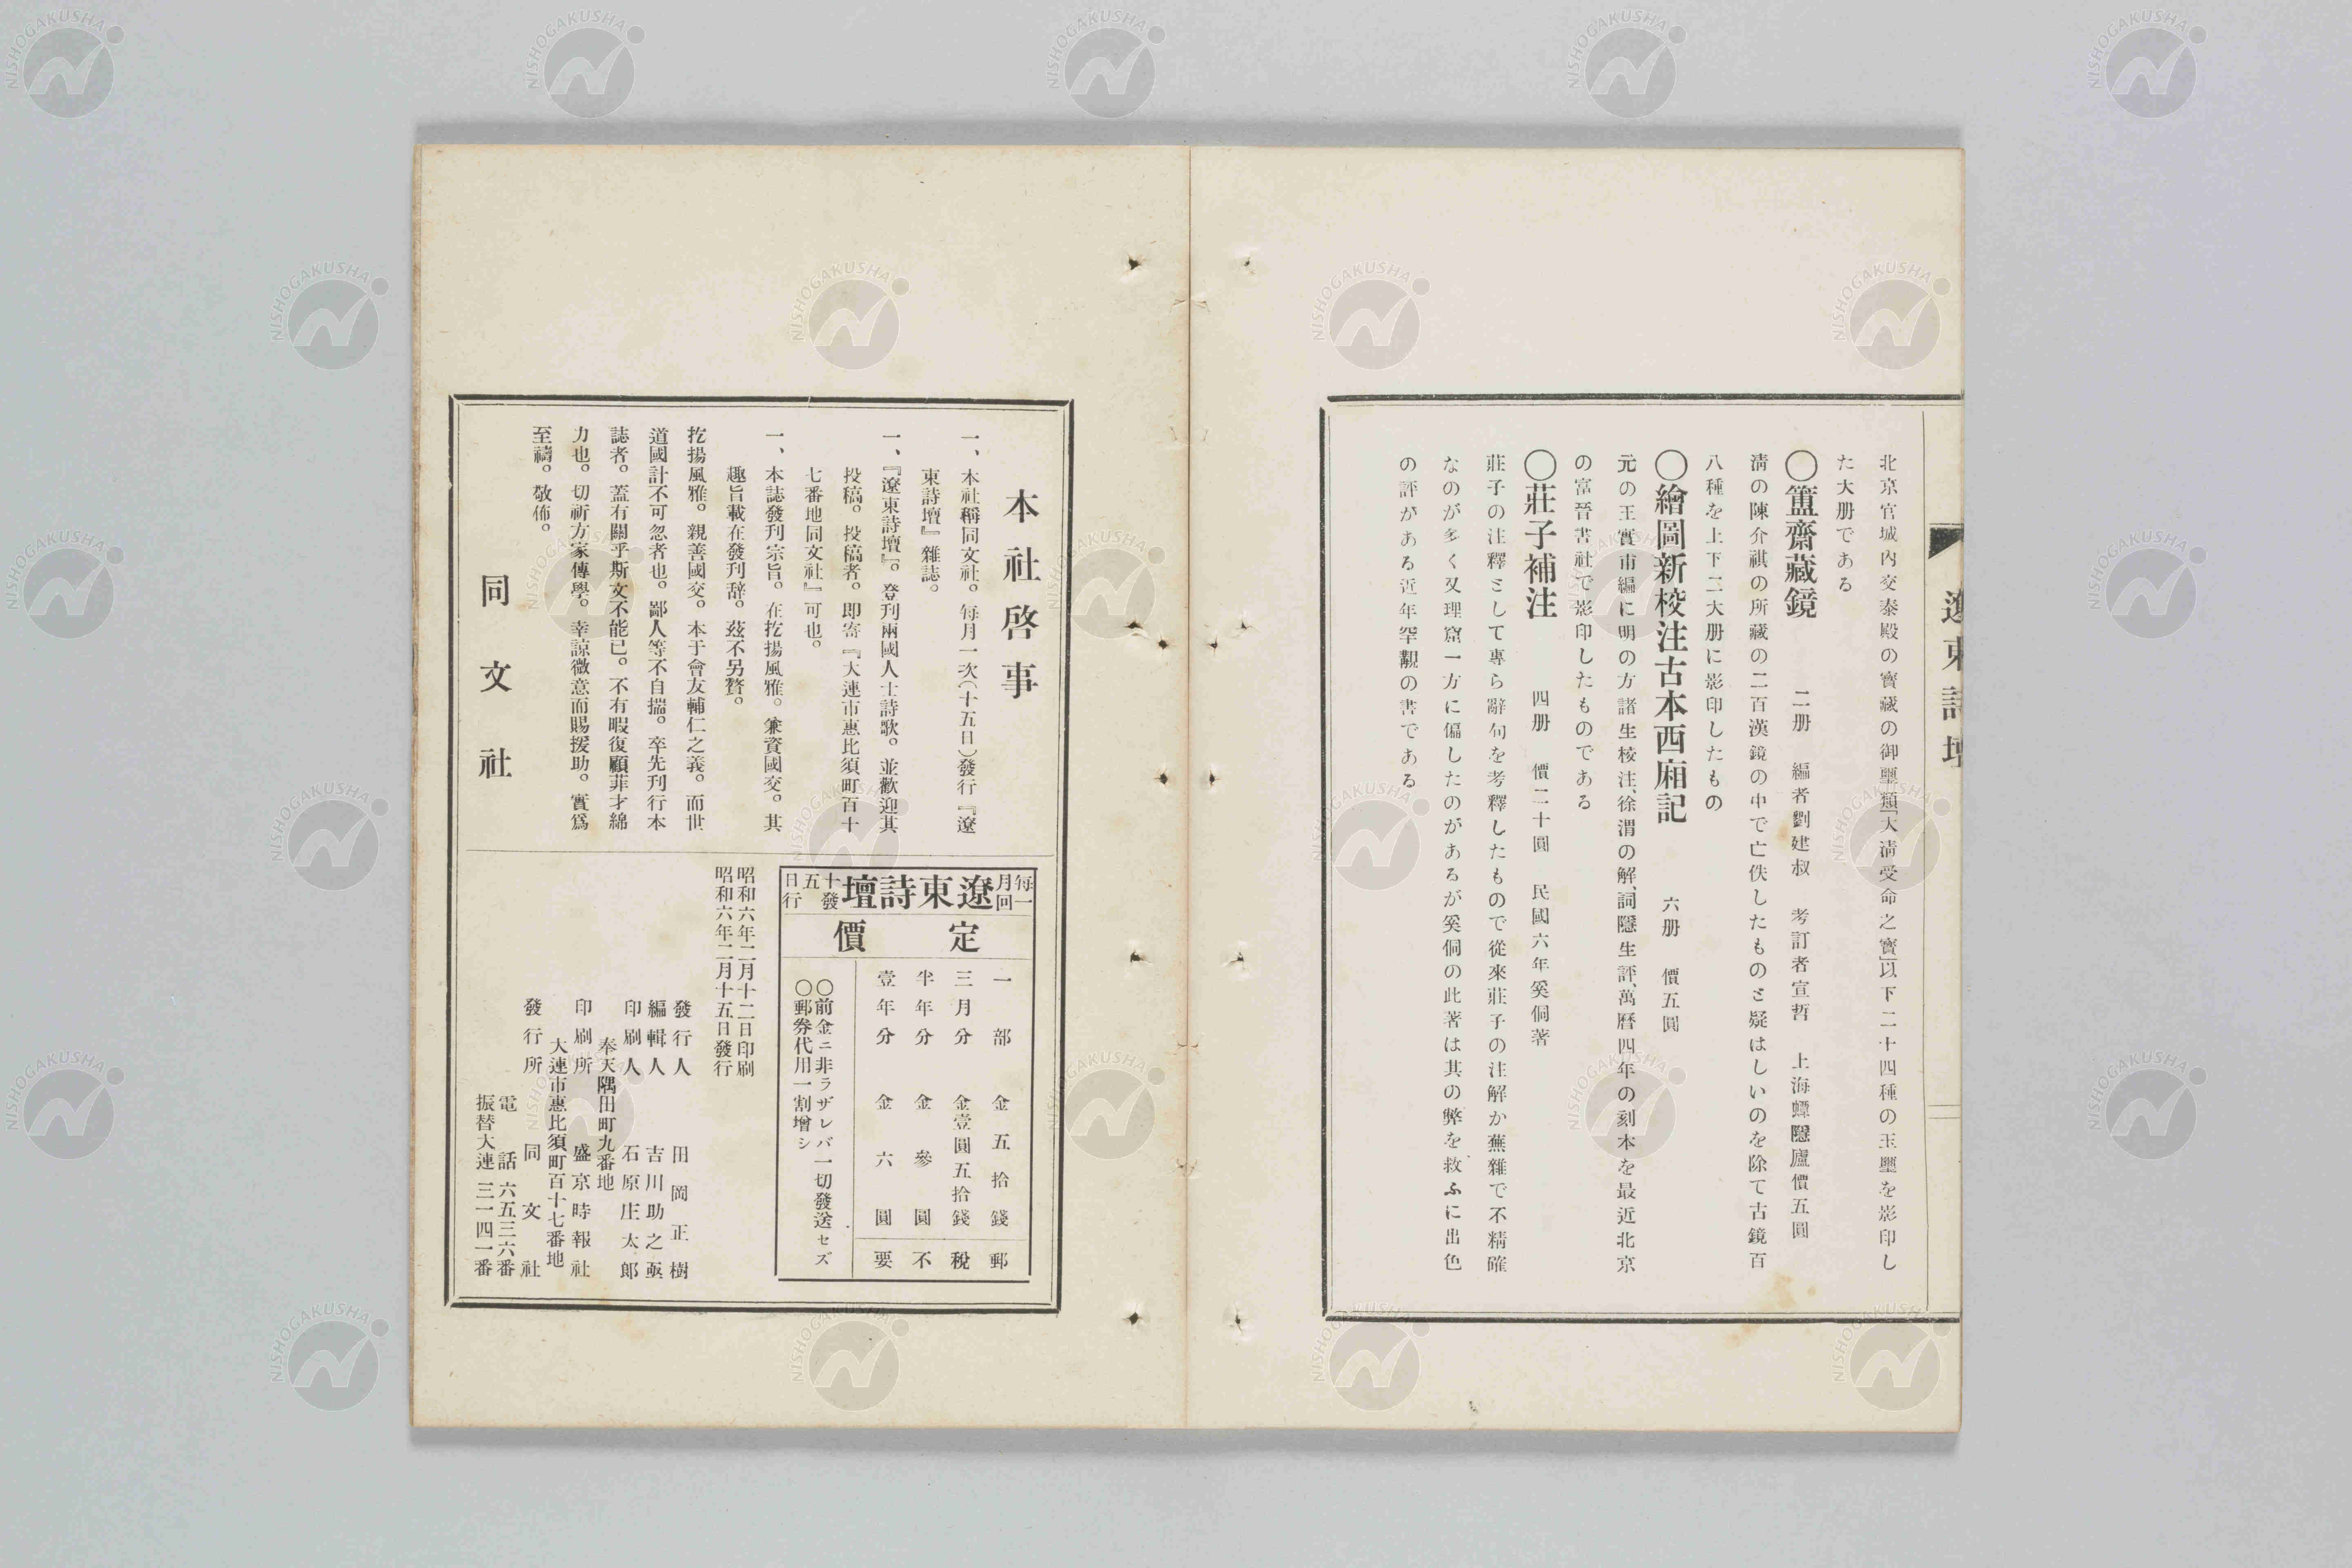 遼東詩壇
北京官城內交泰殿の寶藏の御璽類「大淸受命之寶」以下二十四種の玉璽を影印し
た大册である
〇簠齋藏鏡　二册　編者劉建叔　考訂者宣哲　上海蟫隱廬價五圓
淸の陳介祺の所藏の二百漢鏡の中で亡佚したものと疑はしいのを除て古鏡百
八種を上下二大册に影印したもの
〇繪圖新校注古本西廂記　六册　價五圓
元の王實甫編に明の方諸生校注、徐渭の解、詞隱生評、萬曆四年の刻本を最近北京
の富晉書社で影印したものである
〇莊子補注　四册　價二十圓　民國六年奚侗著
莊子の注釋として專ら辭句を考釋したもので從來莊子の注解か蕪雜で不精確
なのが多く又理窟一方に偏したのがあるが奚侗の此著は其の弊を救ふに出色
の評がある近年罕覯の書である
本社啓事
一、本社稱同文社。每月一次（十五日）發行『遼
東詩壇』雜誌。
一、『遼東詩壇』。登刊兩國人士詩歌。並歡迎其
投稿。投稿者。卽寄『大連市惠比須町百十
七番地同文社』可也。
一、本誌發刊宗旨。在扢揚風雅。兼資國交。其
趣旨載在發刊辭。茲不另贅。
扢揚風雅。親善國交。本于會友輔仁之義。而世
道國計不可忽者也。鄙人等不自揣。卒先刊行本
誌者。蓋有關乎斯文不能已。不有暇復顧菲才綿
力也。切祈方家傳學。幸諒微意而賜援助。實爲
至禱。敬佈。
同文社
每月一回
遼東詩壇
十五日發行
定價
一部　金五拾錢　郵
三月分　金壹圓五拾錢　稅
半年分　金參圓　不
壹年分　金六圓　要
〇前金ニ非ラザレバ一切發送セズ
〇郵券代用一割增シ
昭和六年二月十二日印刷
昭和六年二月十五日發行
發行人　田岡正樹
編輯人　吉川助之亟
印刷人　石原庄太郞
奉天隅田町九番地
印刷所　盛京時報社
大連市惠比須町百十七番地
發行所　同文社
電話六五三六番
振替大連三一四一番